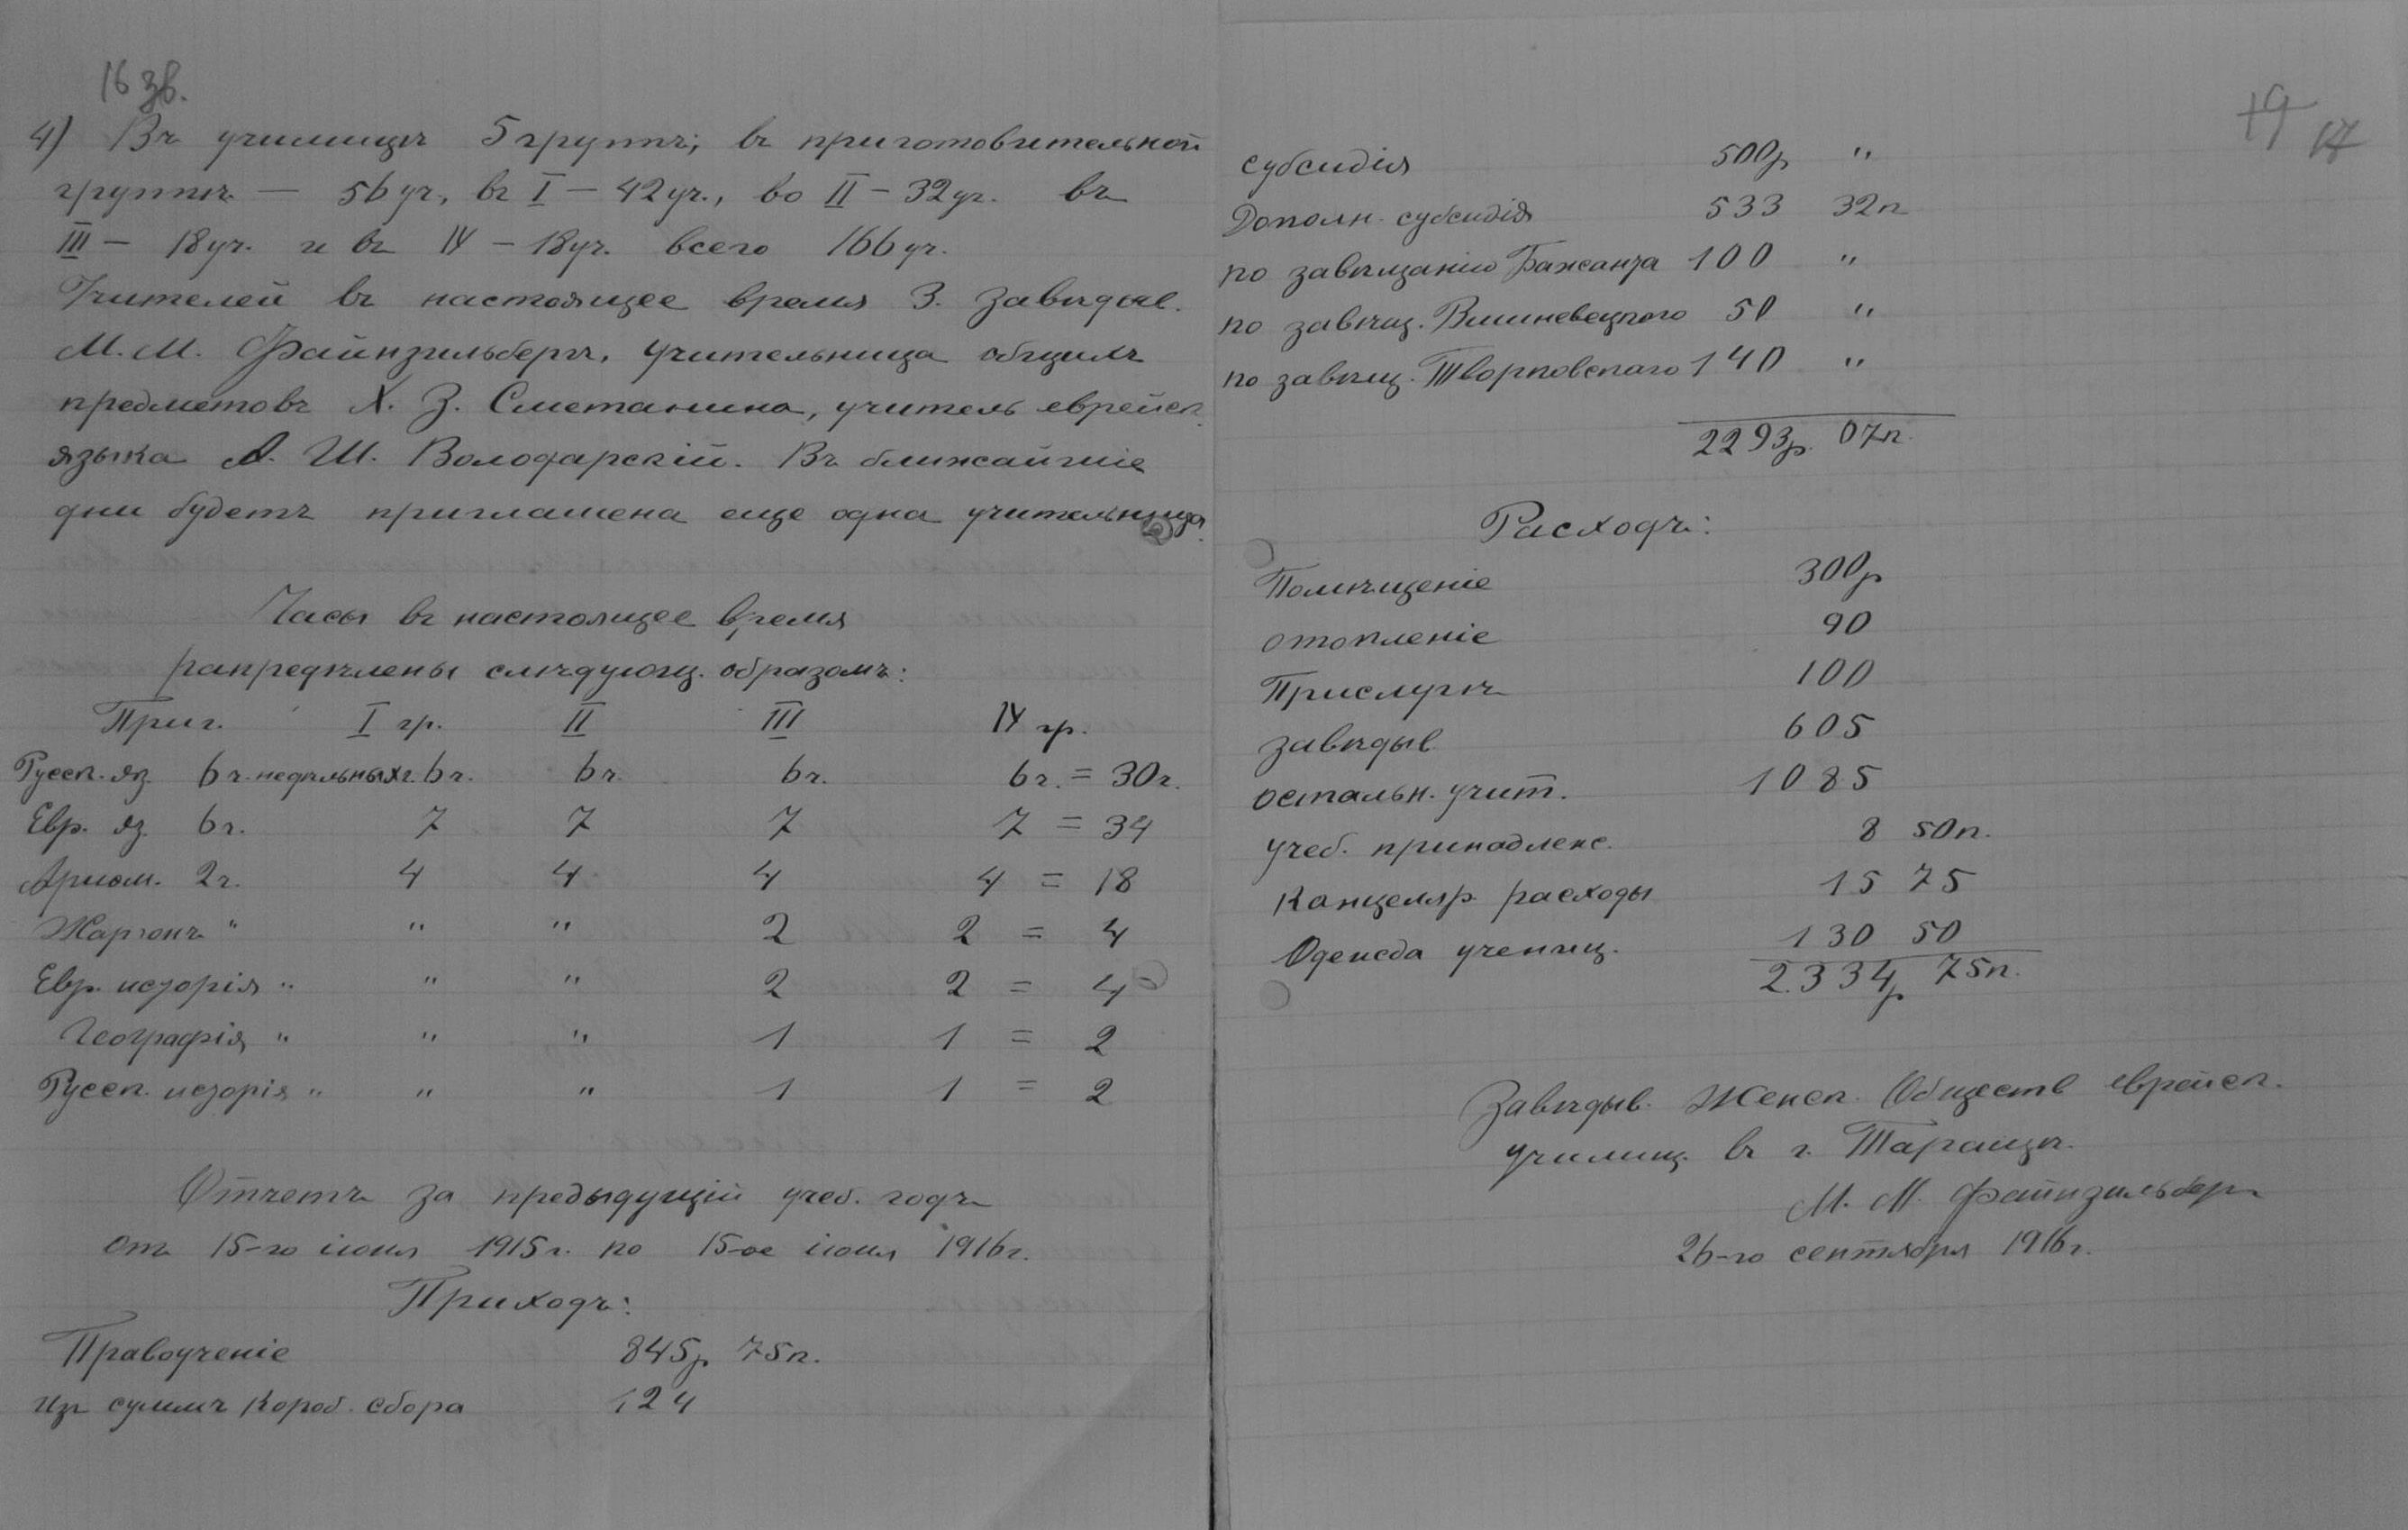 16 зв.
4) Въ училищѣ 5 группъ; въ приготовительной
группѣ — 56 уч., въ I – 42 уч., во II – 32 уч. въ
III – 18 уч. и въ IV – 18 уч. всего 166 уч.
Учителей въ настоящее время 3. Завѣдыв.
М. М. Файнзильбергъ, учительница общихъ
предметовъ Х. З. Сметанина, учитель еврейск.
языка А. Ш. Володарскій. Въ ближайшіе
дни будетъ приглашена еще одна учительница.
Часы въ настоящее время
рапредѣлены слѣдующ. образомъ:
Приг. I гр. II III IV гр.
Русск. яз. 6 ч. недѣльныхъ. 6 ч. 6 ч. 6 ч. 6 ч. = 30 ч.
Евр. яз. 6 ч. 7 7 7 7 = 34
Ариѳм. 2 ч. 4 4 4 4 = 18
Жаргонъ " " " 2 2 = 4
Евр. исторія " " " 2 2 = 4
Географія " " " 1 1 = 2
Русск. исторія " " " 1 1 = 2
Отчетъ за предыдущій учеб. годъ
отъ 15-го іюня 1915 г. по 15-ое іюня 1916 г.
Приходъ:
Правоученіе 845 р 75 к.
изъ суммъ короб. сбора 124
19 17
субсидія 500 р "
Дополн. субсидія 533 32 к
по завѣщанію Бажанза 100 "
по завѣщ. Вишневецкого 50 "
по завѣщ. Творковскаго 140 "
2293 р. 07 к.
Расходъ:
Помѣщеніе 300 р
отопленіе 90
Прислугѣ 100
завѣдыв. 605
остальн. учит. 1085
учеб. принадлеж. 8 50 к.
Канцеляр. расходы 15 75
Одежда учениц. 130 50
2.334 р 75 к.
Завѣдыв. Женск. Обществ еврейск.
училищ. въ г. Таращѣ.
М. М. Файнзильберг
26-го сентября 1916 г.